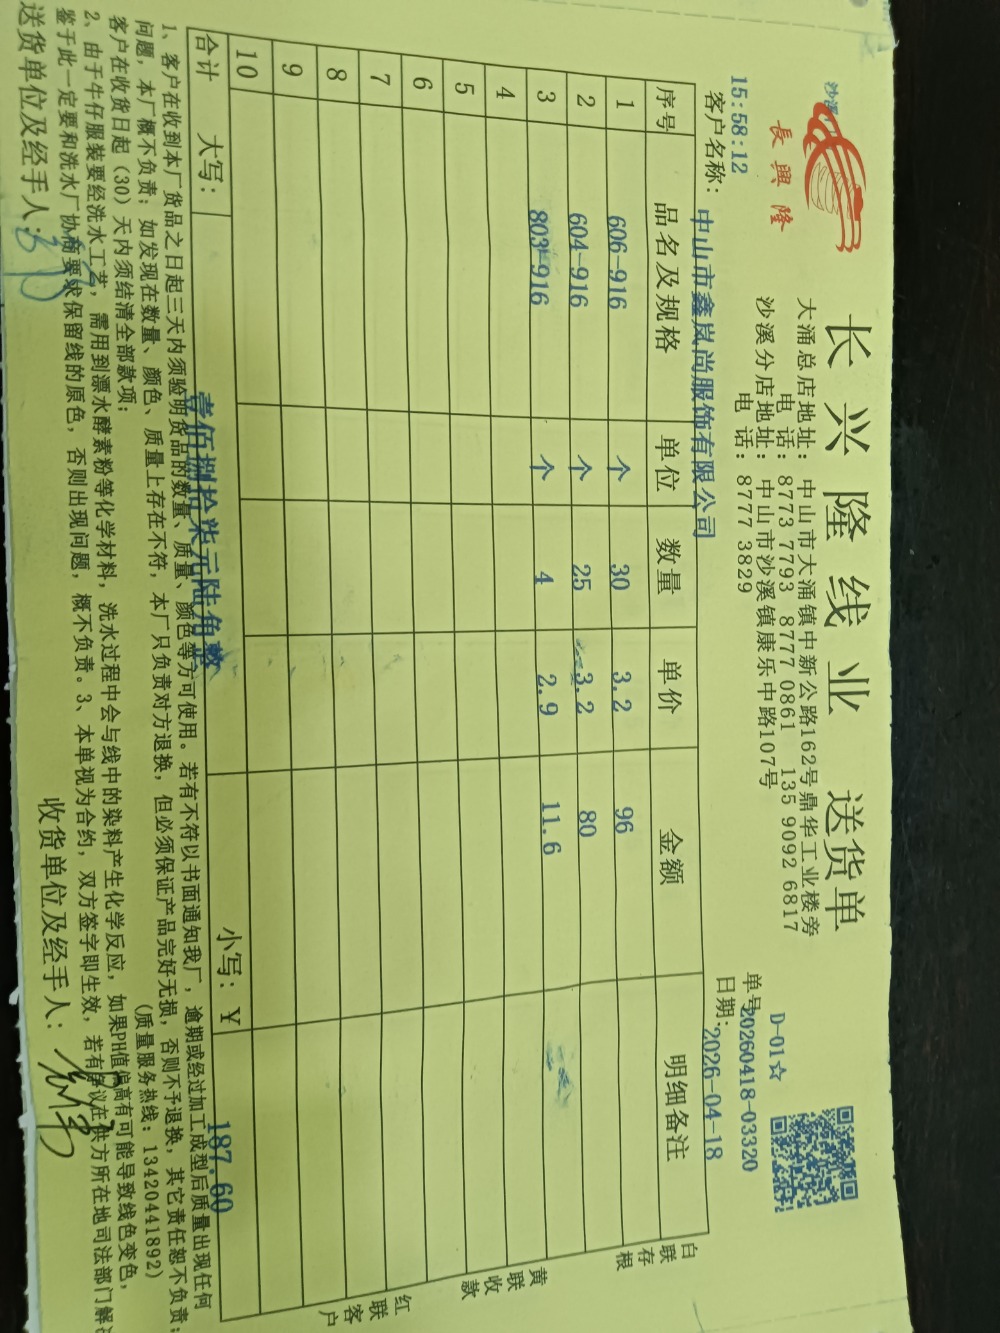 沙溪
長興隆
长兴隆线业 送货单
大涌总店地址: 中山市大涌镇中新公路162号鼎华工业楼旁
电 话: 8773 7793 8777 0861 135 9092 6817
沙溪分店地址: 中山市沙溪镇康乐中路107号
电 话: 8777 3829
D-01☆
单号20260418-03320
日期: 2026-04-18
15:58:12
客户名称: 中山市鑫岚尚服饰有限公司
序号 品名及规格 单位 数量 单价 金额 明细备注
1 606-916 个 30 3.2 96
2 604-916 个 25 3.2 80
3 803-916 个 4 2.9 11.6
4
5
6
7
8
9
10
合计 大写: 壹佰捌拾柒元陆角整 小写: ¥ 187.60
白联存根
黄联收款
红联客户
1、客户在收到本厂货品之日起三天内须验明货品的数量、质量、颜色等方可使用。若有不符以书面通知我厂，逾期或经过加工成型后质量出现任何
问题，本厂概不负责；如发现在数量、颜色、质量上存在不符，本厂只负责对方退换，但必须保证产品完好无损，否则不予退换，其它责任恕不负责；
客户在收货日起（30）天内须结清全部款项； (质量服务热线: 13420441892)
2、由于牛仔服装要经洗水工艺，需用到漂水酵素粉等化学材料，洗水过程中会与线中的染料产生化学反应，如果PH值偏高有可能导致线色变色，
鉴于此一定要和洗水厂协商要求保留线的原色，否则出现问题，概不负责。3、本单视为合约，双方签字即生效，若有争议在供方所在地司法部门解决
送货单位及经手人: 收货单位及经手人: